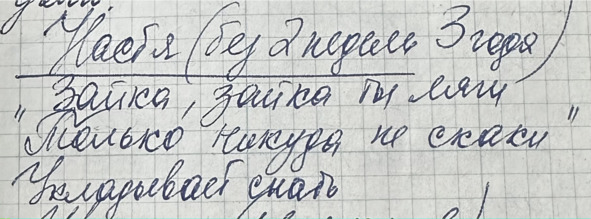 Настя (без 2 недель 3 года)
"Зайка, зайка ты ляги
Только никуда не скаки"
Укладывает спать